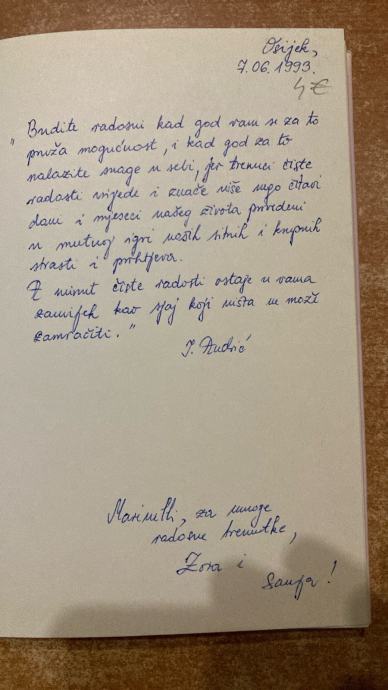 Osijek,
7.06.1993.
4 €
"Budite radosni kad god vam se za to
pruža mogućnost, i kad god za to
nalazite snage u sebi, jer trenuci čiste
radosti vrijede i znače više nego čitavi
dani i mjeseci našeg života provedeni
u mutnoj igri naših sitnih i krupnih
strasti i prohtjeva.
I minut čiste radosti ostaje u vama
zauvijek kao sjaj koji ništa ne može
zamračiti."
I. Andrić
za mnoge
radosne trenutke,
Zora i
Sanja!